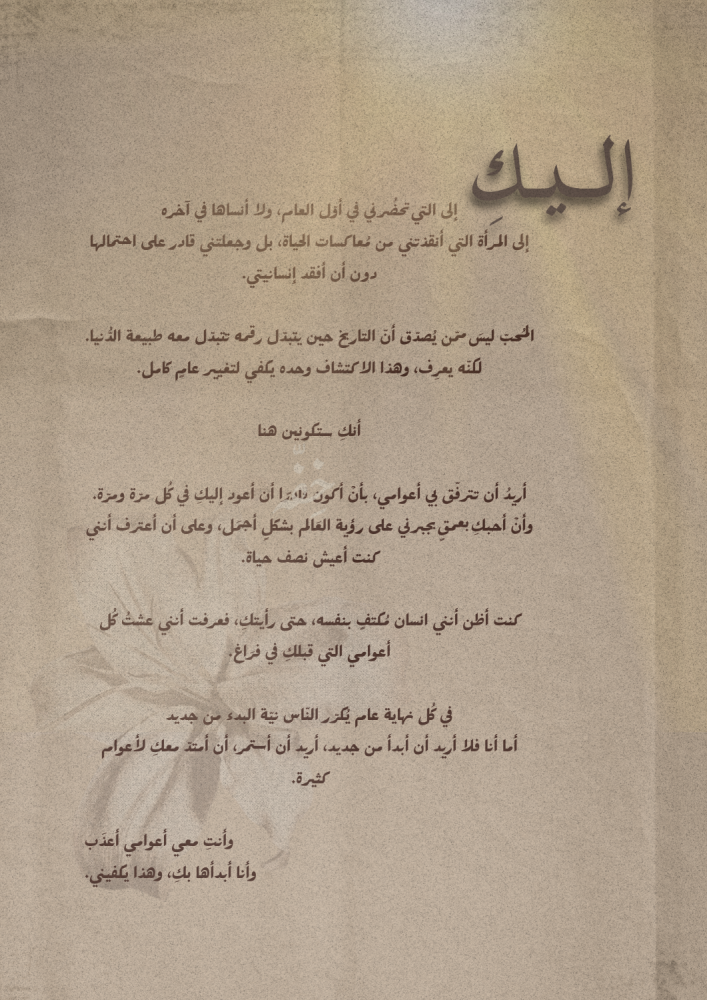 إليكِ
إلى التي تحضُرني في أوّل العام، ولا أنساها في آخره
إلى المرأة التي أنقذتني من مُعاكسات الحياة، بل وجعلتني قادر على احتمالها
دون أن أفقد إنسانيتي.
الحُبّ ليسَ ممّن يُصدّق أنّ التاريخ حين يتبدّل رقمه تتبدّل معه طبيعة الدُّنيا.
لكنّه يعرِف، وهذا الاكتشاف وحده يكفي لتغيير عامٍ كامل.
أنكِ ستكونين هنا
أريدُ أن تترفّق بي أعوامي، بأنّ أكون دائمًا أن أعود إليكِ في كُل مرّة ومرّة.
وأنّ أحبكِ بعمقٍ يجبرني على رؤية العَالم بشكلٍ أجمَل، وعلى أن أعترف أنني
كنت أعيش نصف حياة.
كنت أظن أنني انسان مُكتفٍ بنفسه، حتى رأيتكِ، فعرفت أنني عشتُ كُل
أعوامي التي قبلكِ في فراغ.
في كُل نهاية عام يُكرّر النّاس نيّة البدء من جديد
أما أنا فلا أريد أن أبدأ من جديد، أريد أن أستمر، أن أمتدّ معكِ لأعوام
كثيرة.
وأنتِ معي أعوامي أعذَب
وأنا أبدأها بكِ، وهذا يكفيني.